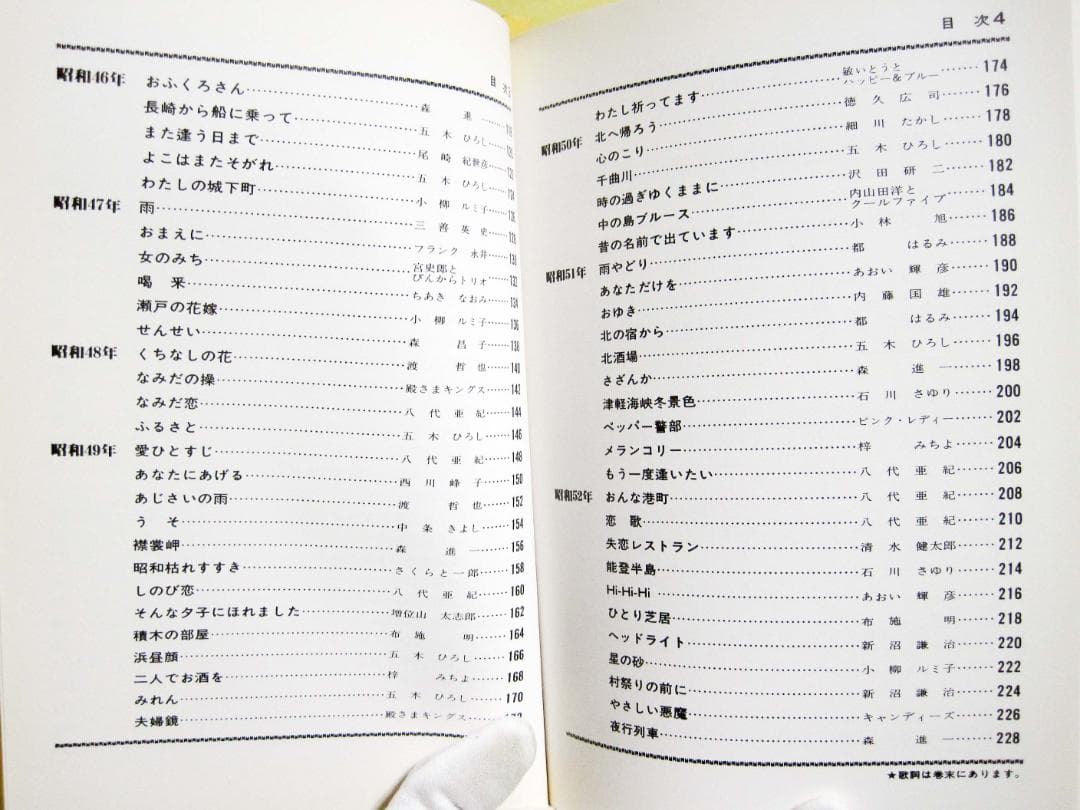 目 次
昭和46年 おふくろさん 森 進一
長崎から船に乗って 五木ひろし
また逢う日まで 尾崎紀世彦
よこはまたそがれ 五木ひろし
わたしの城下町 小柳ルミ子
昭和47年 雨 三善英史
おまえに フランク永井
女のみち 宮史郎とぴんからトリオ 132
喝 采 ちあきなおみ 134
瀬戸の花嫁 小柳ルミ子 136
せんせい 森 昌子 138
昭和48年 くちなしの花 渡 哲也 140
なみだの操 殿さまキングス 142
なみだ恋 八代亜紀 144
ふるさと 五木ひろし 146
昭和49年 愛ひとすじ 八代亜紀 148
あなたにあげる 西川峰子 150
あじさいの雨 渡 哲也 152
う そ 中条きよし 154
襟裳岬 森 進一 156
昭和枯れすすき さくらと一郎 158
しのび恋 八代亜紀 160
そんな夕子にほれました 増位山太志郎 162
積木の部屋 布施 明 164
浜昼顔 五木ひろし 166
二人でお酒を 梓 みちよ 168
みれん 五木ひろし 170
夫婦鏡 殿さまキングス
目 次 4
わたし祈ってます 敏いとうとハッピー&ブルー 174
昭和50年 北へ帰ろう 徳久広司 176
心のこり 細川たかし 178
千曲川 五木ひろし 180
時の過ぎゆくままに 沢田研二 182
中の島ブルース 内山田洋とクールファイブ 184
昔の名前で出ています 小林 旭 186
昭和51年 雨やどり 都 はるみ 188
あなただけを あおい輝彦 190
おゆき 内藤国雄 192
北の宿から 都 はるみ 194
北酒場 五木ひろし 196
さざんか 森 進一 198
津軽海峡冬景色 石川さゆり 200
ペッパー警部 ピンク・レディー 202
メランコリー 梓 みちよ 204
もう一度逢いたい 八代亜紀 206
昭和52年 おんな港町 八代亜紀 208
恋 歌 八代亜紀 210
失恋レストラン 清水健太郎 212
能登半島 石川さゆり 214
Hi-Hi-Hi あおい輝彦 216
ひとり芝居 布施 明 218
ヘッドライト 新沼謙治 220
星の砂 小柳ルミ子 222
村祭りの前に 新沼謙治 224
やさしい悪魔 キャンディーズ 226
夜行列車 森 進一 228
★歌詞は巻末にあります。